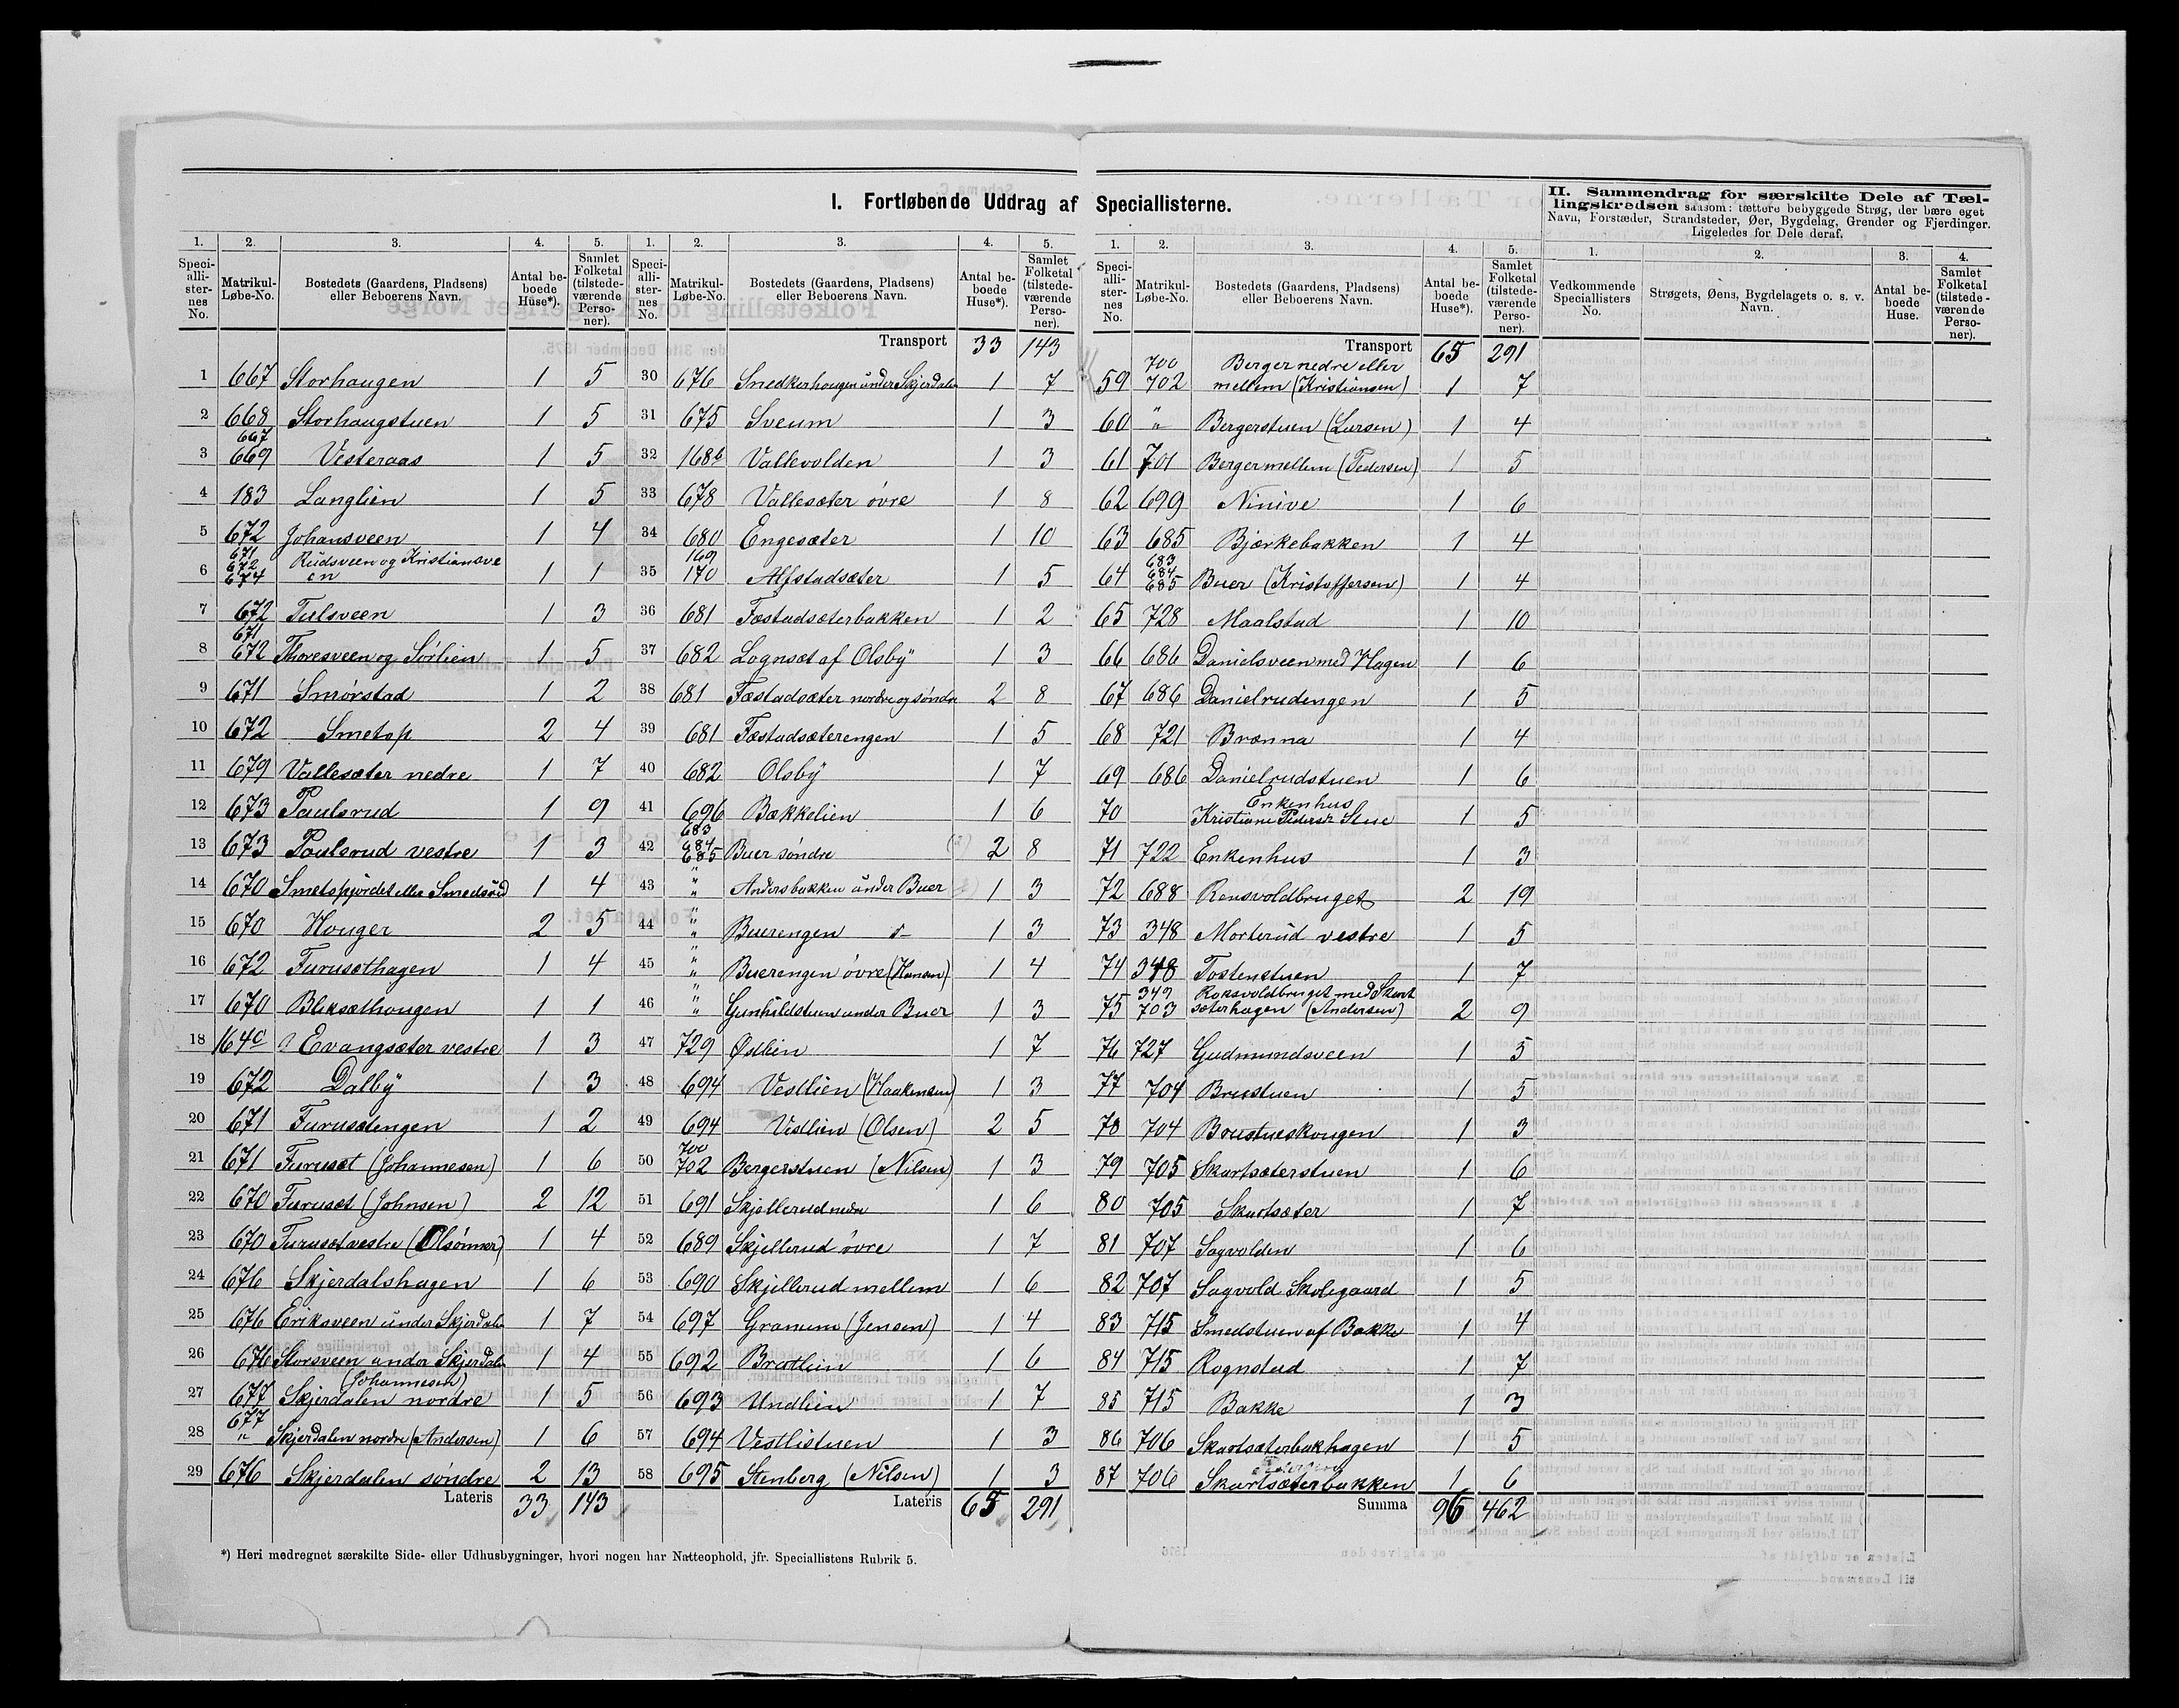 I. Fortløbende Uddrag af Speciallisterne.
II. Sammendrag for særskilte Dele af Tæl-
lingskredsen saasom: tættere bebyggede Strøg, der bære eget
Navn, Forstæder, Strandsteder, Øer, Bygdelag, Grender og Fjerdinger.
Ligeledes for Dele deraf.
1. 2. 3. 4. 5.
Speci-alli-ster-nes No. Matrikul-Løbe-No. Bostedets (Gaardens, Pladsens) eller Beboerens Navn. Antal be-boede Huse*). Samlet Folketal (tilstede-værende Perso-ner).
1 667 Storhaugen 1 5
2 668 Storhaugstuen 1 5
3 667 669 Vesteraas 1 5
4 183 Langlien 1 5
5 672 Johansveen 1 4
6 671 672 674 Rudsveen og Kristiansveen 1 1
7 672 Tulsveen 1 3
8 671 672 Thoresveen og Sørlien 1 5
9 671 Smørstad 1 2
10 672 Smetop 2 4
11 679 Vallesæter nedre 1 7
12 673 Paulsrud 1 9
13 673 Paulsrud vestre 1 3
14 670 Smetopjordet eller 1 4
15 670 Houger 2 5
16 672 Furusethagen 1 4
17 670 Bliksethaugen 1 1
18 164c Evangsæter vestre 1 3
19 672 Dalby 1 3
20 671 Furusetengen 1 2
21 671 Furuset (Johannesen) 1 6
22 670 Furuset (Johnsen) 2 12
23 670 Furuset vestre (Olsønner) 1 4
24 676 Skjerdalshagen 1 6
25 676 Eriksveen under Skjerdalen 1 7
26 676 Storsveen under Skjerdalen 1 4
27 677 Skjerdalen nordre (Johannesen) 1 5
28 677 " Skjerdalen nordre (Andersen) 1 6
29 676 Skjerdalen søndre 2 13
Lateris 33 143
1. 2. 3. 4. 5.
Speci-alli-ster-nes No. Matrikul-Løbe-No. Bostedets (Gaardens, Pladsens) eller Beboerens Navn. Antal be-boede Huse*). Samlet Folketal (tilstede-værende Perso-ner).
Transport 33 143
30 676 Snedkerhougen under Skjerdalen 1 7
31 675 Sveum 1 3
32 168b Vallevolden 1 3
33 678 Vallesæter övre 1 8
34 680 Engesæter 1 10
35 169 170 Alfstadsæter 1 5
36 681 Fæstadsæterbakken 1 2
37 682 Lognset af Olsby 1 3
38 681 Fæstadsæter nordre og søndre 2 8
39 681 Fæstadsæterengen 1 5
40 682 Olsby 1 7
41 696 Bækkelien 1 6
42 683 684 685 Buer søndre (2) 2 8
43 " " Andersbakken under Buer 1 3
44 " " Buerengen 1 3
45 " " Buerengen övre (Hansen) 1 4
46 " " Gunhildstuen under Buer 1 3
47 729 Østlien 1 7
48 694 Vestlien (Haakensen) 1 3
49 694 Vestlien (Olsen) 2 5
50 700 702 Bergerstuen (Nilsen) 1 3
51 691 Skjellerud nedre 1 6
52 689 Skjellerud övre 1 7
53 690 Skjellerud mellem 1 6
54 697 Granum (Jensen) 1 4
55 692 Bratlien 1 6
56 693 Undlien 1 7
57 694 Vestlistuen 1 3
58 695 Stenberg (Nilsen) 1 3
Lateris 65 291
1. 2. 3. 4. 5.
Speci-alli-ster-nes No. Matrikul-Løbe-No. Bostedets (Gaardens, Pladsens) eller Beboerens Navn. Antal be-boede Huse*). Samlet Folketal (tilstede-værende Perso-ner).
Transport 65 291
59 700 702 Berger nedre eller mellem (Kristiansen) 1 7
60 " Bergerstuen (Larsen) 1 4
61 701 Berger mellem (Pedersen) 1 5
62 699 Ninive 1 6
63 685 Bjærkebakken 1 4
64 683 684 685 Buer (Kristoffersen) 1 4
65 728 Maalstad 1 10
66 686 Danielsveen med Hagen 1 6
67 686 Danielrudengen 1 5
68 721 Brænna 1 4
69 686 Danielrudstuen 1 6
70 Enkenhus Kristiane Pedersd. Stue 1 5
71 722 Enkenhus 1 3
72 688 Rensvoldbruget 2 19
73 348 Morterud vestre 1 5
74 348 Tostenstuen 1 7
75 349 703 Roksvoldbruget med Skartsæterhagen (Andersen) 2 9
76 727 Gudmundsveen 1 5
77 704 Brustuen 1 5
78 704 Brustueskougen 1 3
79 705 Skartsæterstuen 1 6
80 705 Skartsæter 1 7
81 707 Sagvolden 1 6
82 707 Sagvold Skolegaard 1 5
83 715 Smedstuen af Bakke 1 4
84 715 Rognstad 1 7
85 715 Bakke 1 3
86 706 Skartsæterbakhagen 1 5
87 706 Skartsæterbakken 1 6
Summa 96 462
1. 2. 3. 4.
Vedkommende Speciallisters No. Strøgets, Øens, Bygdelagets o. s. v. Navn. Antal be-boede Huse. Samlet Folketal (tilstede-værende Perso-ner).
*) Heri medregnet særskilte Side- eller Udhusbygninger, hvori nogen har Natteophold, jfr. Speciallistens Rubrik 5.